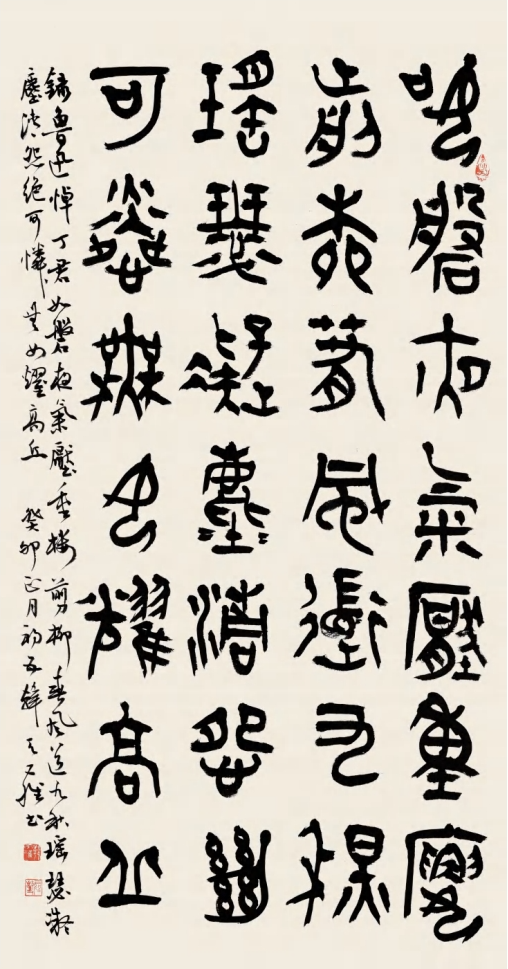 如磐夜氣壓重樓
剪柳春風衟九秋
瑤瑟凝塵清怨絕
可憐無女耀高丘
錄魯迅悼丁君 如磐夜氣壓重樓 剪柳春風道九秋 瑤瑟凝
塵清怨絕可憐無女燿高丘 癸卯正月初五 書